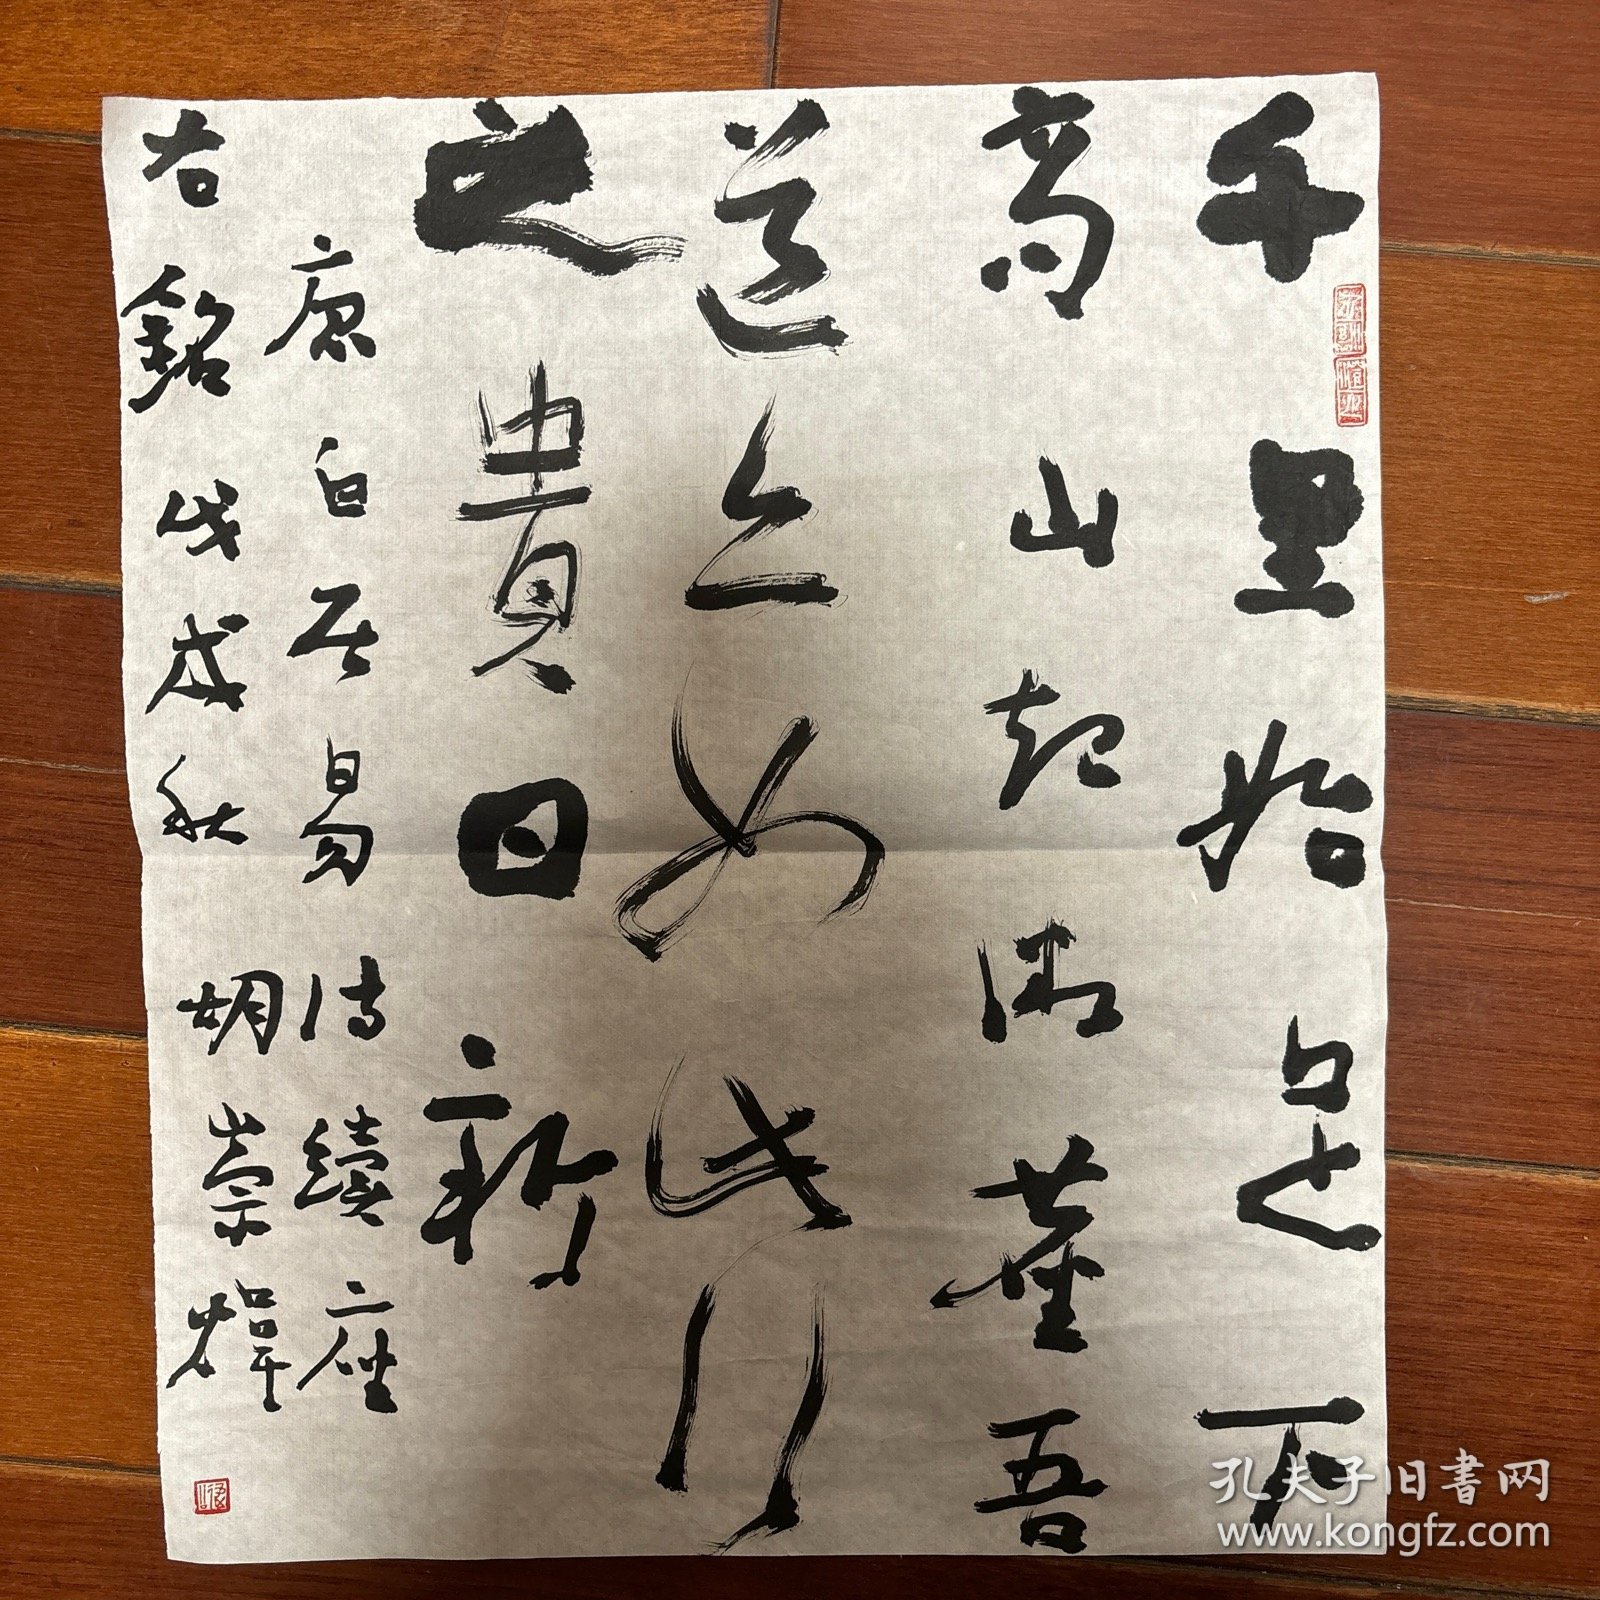 千里始足下
高山起微尘吾
道亦如此行
之貴日新
唐白居易诗續座
右銘戊戌秋胡崇煒
孔夫子旧書网
www.kongfz.com